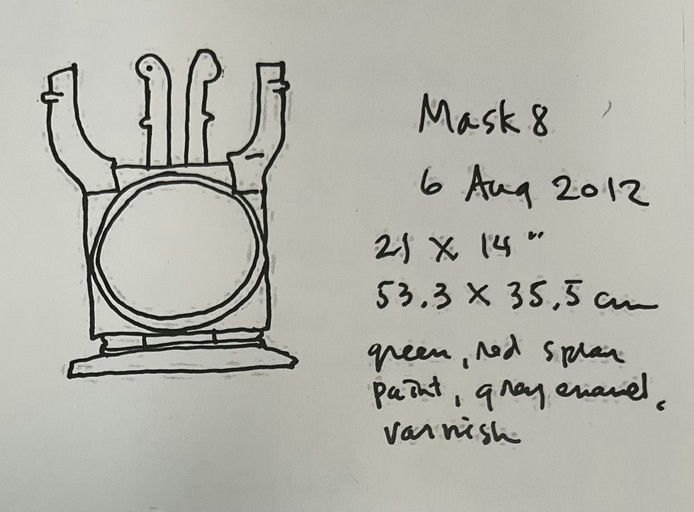 Mask 8
6 Aug 2012
21 x 14"
53.3 x 35.5 cm
green, red spray
paint, gray enamel,
varnish